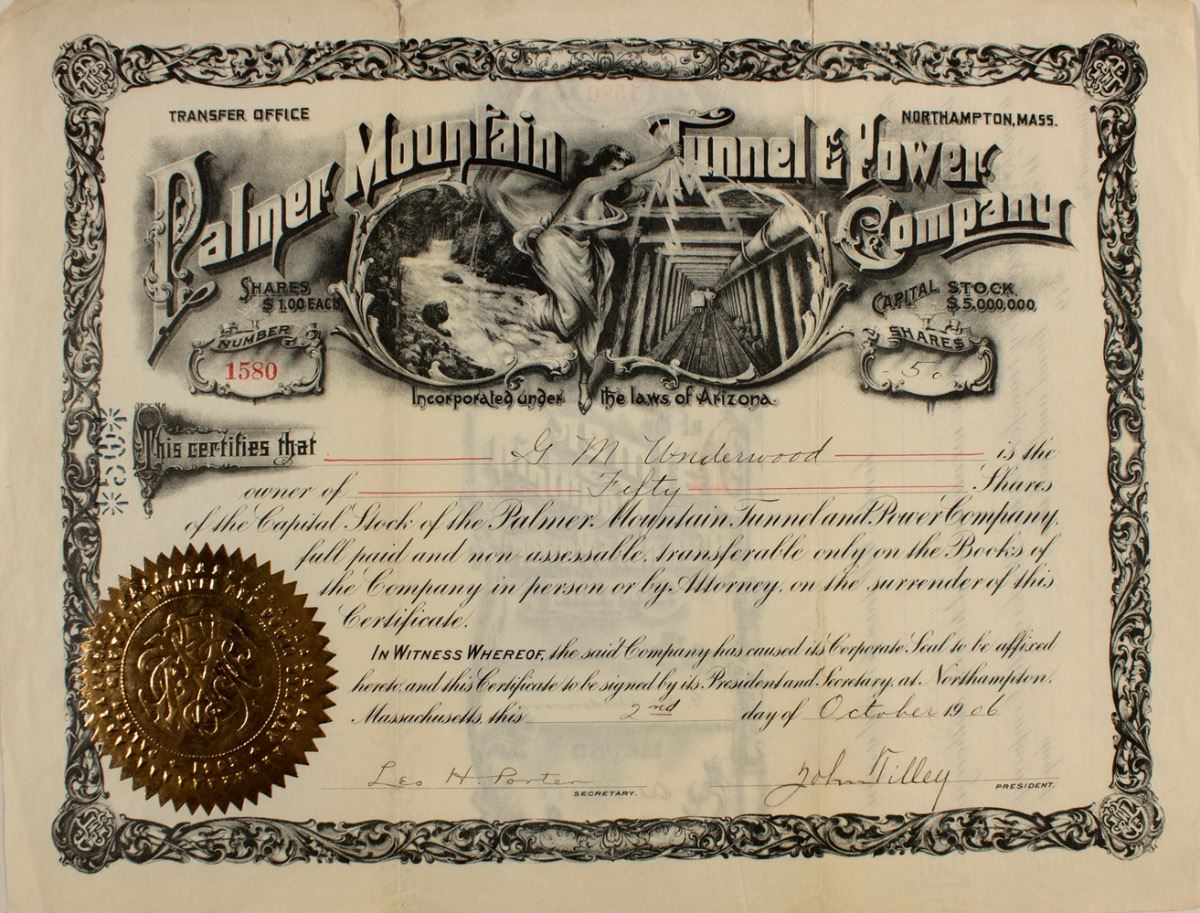 TRANSFER OFFICE
NORTHAMPTON, MASS.
Palmer Mountain Tunnel & Power Company
SHARES $1.00 EACH
CAPITAL STOCK $5,000,000
NUMBER
1580
SHARES
- 50 -
Incorporated under the laws of Arizona.
This certifies that G M Underwood is the
owner of Fifty Shares
of the Capital Stock of the Palmer Mountain Tunnel and Power Company,
full paid and non-assessable, transferable only on the Books of
the Company in person or by Attorney, on the surrender of this
Certificate.
IN WITNESS WHEREOF, the said Company has caused its Corporate Seal to be affixed
hereto, and this Certificate to be signed by its President and Secretary, at Northampton,
Massachusetts, this 2nd day of October 1906
Leo H Porter
SECRETARY.
John Tilley
PRESIDENT.
*50*